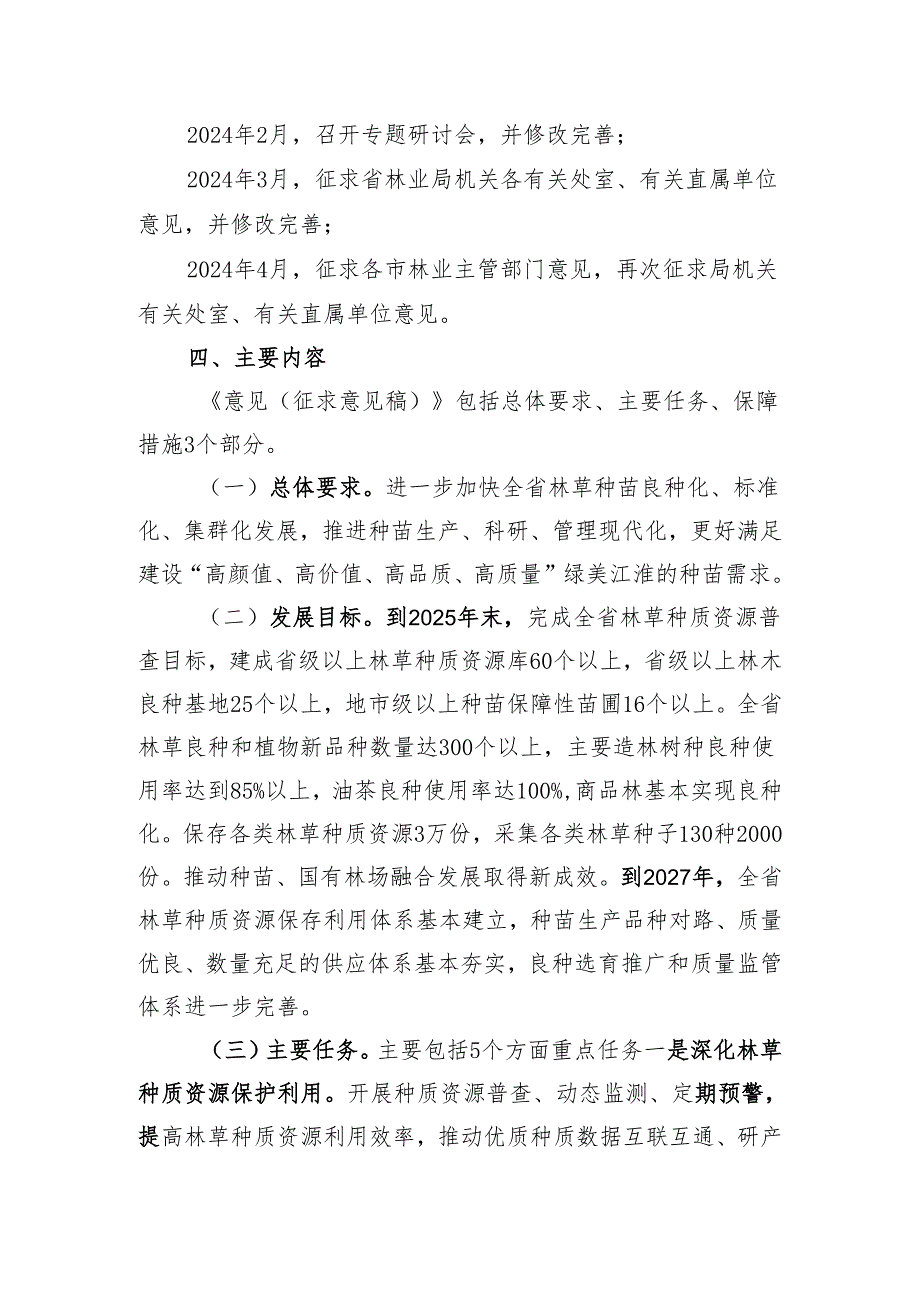 2024年2月，召开专题研讨会，并修改完善；
2024年3月，征求省林业局机关各有关处室、有关直属单位
意见，并修改完善；
2024年4月，征求各市林业主管部门意见，再次征求局机关
有关处室、有关直属单位意见。
四、主要内容
《意见（征求意见稿）》包括总体要求、主要任务、保障
措施3个部分。
（一）总体要求。进一步加快全省林草种苗良种化、标准
化、集群化发展，推进种苗生产、科研、管理现代化，更好满足
建设“高颜值、高价值、高品质、高质量”绿美江淮的种苗需求。
（二）发展目标。到2025年末，完成全省林草种质资源普
查目标，建成省级以上林草种质资源库60个以上，省级以上林木
良种基地25个以上，地市级以上种苗保障性苗圃16个以上。全省
林草良种和植物新品种数量达300个以上，主要造林树种良种使
用率达到85%以上，油茶良种使用率达100%,商品林基本实现良种
化。保存各类林草种质资源3万份，采集各类林草种子130种2000
份。推动种苗、国有林场融合发展取得新成效。到2027年，全省
林草种质资源保存利用体系基本建立，种苗生产品种对路、质量
优良、数量充足的供应体系基本夯实，良种选育推广和质量监管
体系进一步完善。
（三）主要任务。主要包括5个方面重点任务一是深化林草
种质资源保护利用。开展种质资源普查、动态监测、定期预警，
提高林草种质资源利用效率，推动优质种质数据互联互通、研产